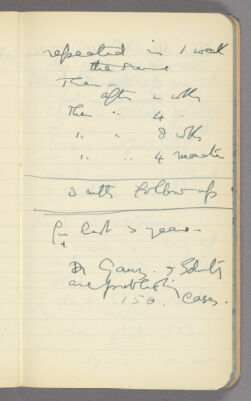 repeated in 1 week
the same
Then
after 2 wks
Then " 4 "
" " 8 wks
" " 4 months
3 mths follow up
In last 3 years.
Dr Ganz &
are publishing
150 cases.